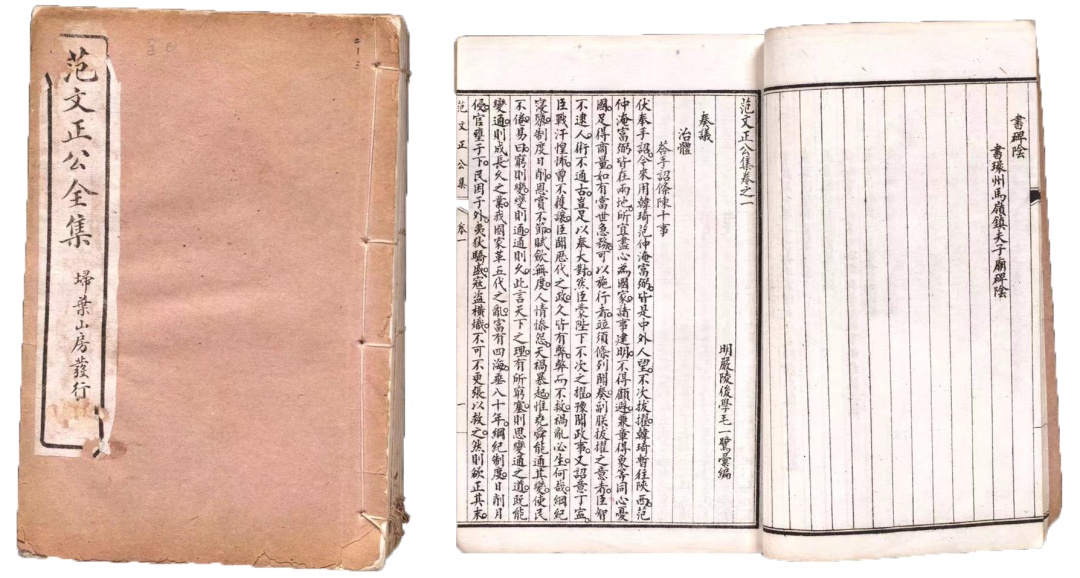 范文正公全集
埽葉山房發行
二十三
書碑陰
書環州馬嶺鎮夫子廟碑陰
范文正公集卷之一
明嚴陵後學毛一鷺彙編
奏議
治體
答手詔條陳十事
伏奉手詔今來用韓琦范仲淹富弼皆是中外人望不次拔擢韓琦暫往陝西范
仲淹富弼皆在兩地所宜盡心為國家諸事建明不得顧避兼章得象等同心憂
國足得商量如有當世急務可以施行者並須條列聞奏副朕拔擢之意者臣智
不逮人術不通古豈足以奉大對然臣蒙陛下不次之擢豫聞政事又詔意丁寧
臣戰汗惶怖曾不獲讓臣聞歷代之政久皆有弊弊而不救禍亂必生何哉綱紀
寖隳制度日削恩賞不節賦斂無度人情慘怨天禍暴起惟堯舜能通其變使民
不倦易曰窮則變變則通通則久此言天下之理有所窮塞則思變通之道既能
變通則成長久之業我國家革五代之亂富有四海垂八十年綱紀制度日削月
侵官壅于下民困于外夷狄驕盛寇盜橫熾不可不更張以救之然則欲正其末
范文正公集
卷一
一